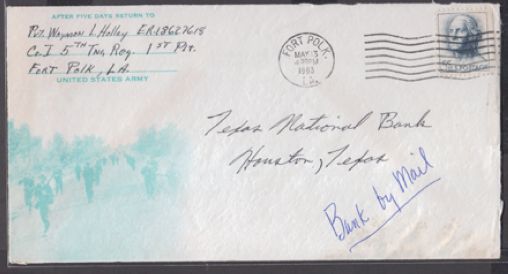 AFTER FIVE DAYS RETURN TO
Pvt. Waymon L Holley ER18627618
Co. I 5TH Tng. Reg. 1ST Plt.
Fort Polk, LA.
UNITED STATES ARMY
FORT POLK.
MAY 13
PM
1963
LA.
Texas National Bank
Houston, Texas
Bank by Mail